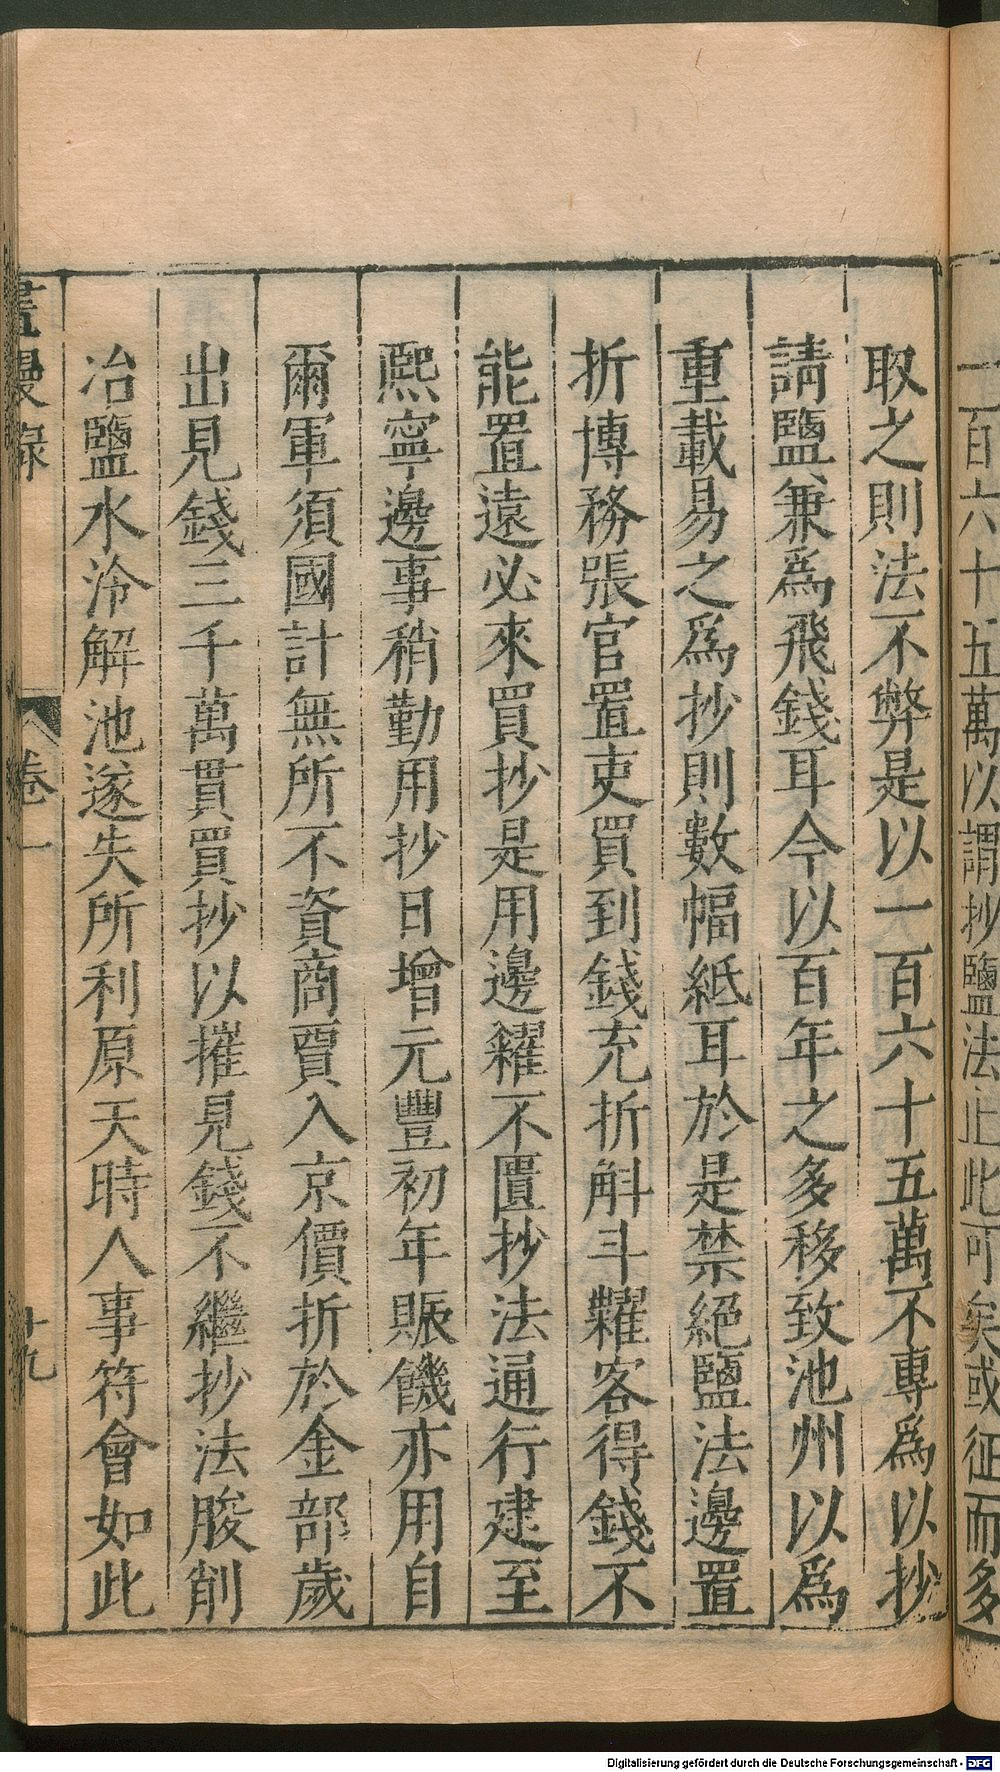 一百六十五萬以謂抄鹽法止此可矣或征而多
取之則法不弊是以一百六十五萬不專為以抄
請鹽兼為飛錢耳今以百年之多移致池州以為
重載易之為抄則數幅紙耳於是禁絕鹽法邊置
折博務張官置吏買到錢充折斛斗糶客得錢不
能置遠必來買抄是用邊糴不匱抄法通行建至
熙寧邊事稍勤用抄日增元豐初年賑饑亦用自
爾軍須國計無所不資商賈入京價折於金部歲
出見錢三千萬貫買抄以摧見錢不繼抄法朘削
冶鹽水泠解池遂失所利原天時人事符會如此
畫墁錄
卷一
十九
Digitalisierung gefördert durch die Deutsche Forschungsgemeinschaft - DFG